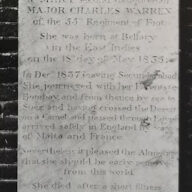 MAJOR CHARLES WARREN
of the 55th Regiment of Foot
She was born at Bellary
in the East Indies
on the 18th day of May 1835.
In Decr 1837 leaving Secunderabad
She journeyed with her Parents
Bombay, and from thence by sea to
Suez and having crossed the Desert
on a Camel and passed through
arrived safely in England
of Malta and France.
Nevertheless it pleased the Almighty
that she should be early
from this world
She died after a short illness